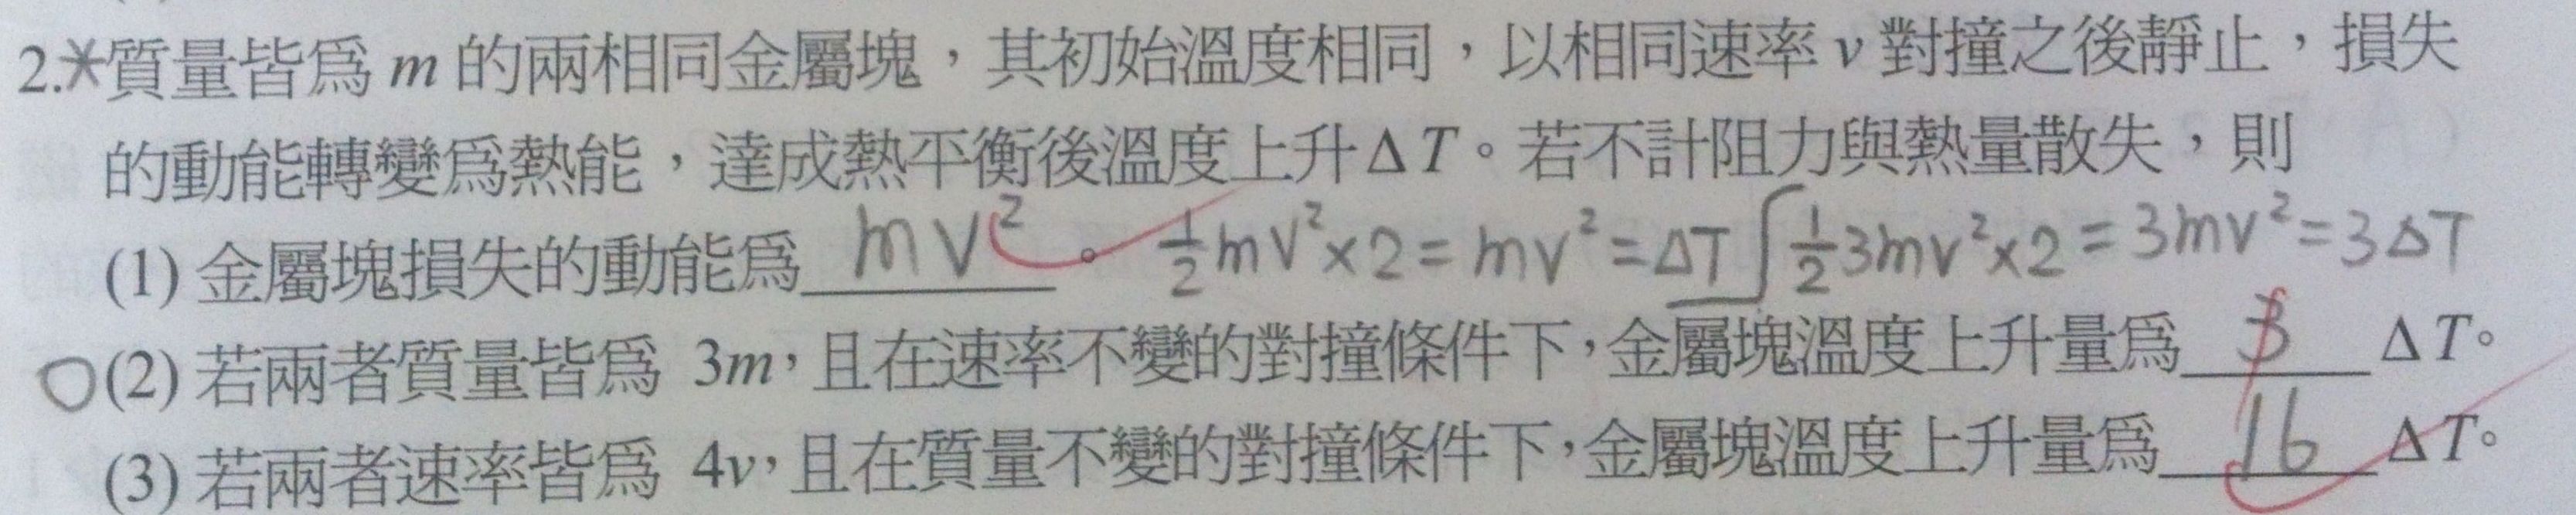 2.*質量皆為 m 的兩相同金屬塊，其初始溫度相同，以相同速率 v 對撞之後靜止，損失
的動能轉變為熱能，達成熱平衡後溫度上升ΔT。若不計阻力與熱量散失，則
(1) 金屬塊損失的動能為 mv² 。 ½mv²×2=mv²=ΔT ½3mv²×2=3mv²=3ΔT
(2) 若兩者質量皆為 3m，且在速率不變的對撞條件下，金屬塊溫度上升量為 3 ΔT。
(3) 若兩者速率皆為 4v，且在質量不變的對撞條件下，金屬塊溫度上升量為 16 ΔT。